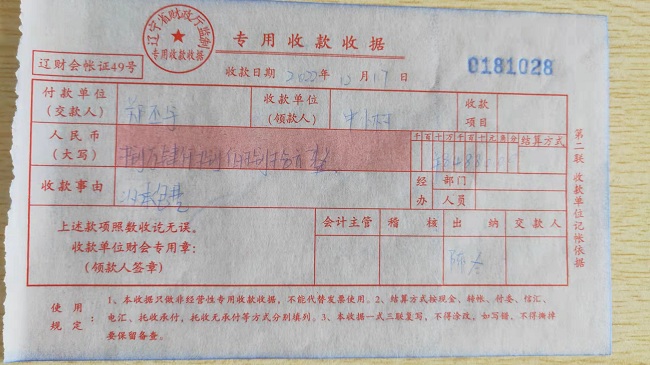 辽宁省财政厅监制
专用收款收据
专用收款收据
辽财会帐证49号
收款日期 2022年12月17日
0181028
付款单位
(交款人)
收款单位
(领款人)
收款
项目
人民币
(大写)
千百十万千百十元角分
结算方式
收款事由
经办
部门
人员
上述款项照数收讫无误。
收款单位财会专用章:
(领款人签章)
会计主管
稽 核
出 纳
交款人
第二联 收款单位记帐依据
使用规定:
1、本收据只做非经营性专用收款收据,不能代替发票使用。2、结算方式按现金、转帐、付委、信汇、
电汇、托收承付、托收无承付等方式分别填列。3、本收据一式三联复写,不得涂改,如写错,不得撕掉
要保留备查。